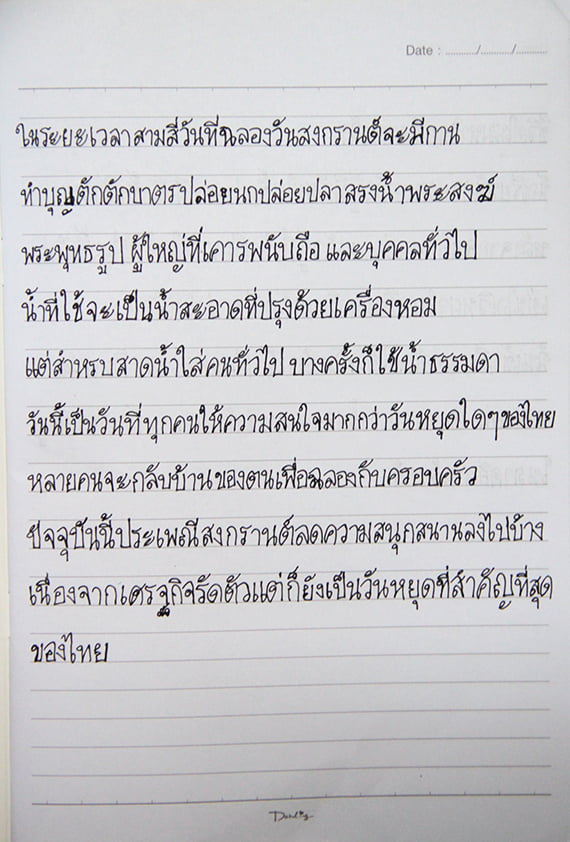 Date : ........../........../..........
ในระยะเวลาสามสี่วันที่ฉลองวันสงกรานต์จะมีกาน
ทำบุญตักตักบาตรปล่อยนกปล่อยปลาสรงน้ำพระสงฆ์
พระพุทธรูป ผู้ใหญ่ที่เคารพนับถือ และบุคคลทั่วไป
น้ำที่ใช้จะเป็นน้ำสะอาดที่ปรุงด้วยเครื่องหอม
แต่สำหรบสาดน้ำใส่คนทั่วไป บางครั้งก็ใช้น้ำธรรมดา
วันนี้เป็นวันที่ทุกคนให้ความสนใจมากกว่าวันหยุดใดๆของไทย
หลายคนจะกลับบ้านของตนเพื่อฉลองกับครอบครัว
ปัจจุบันนี้ประเพณีสงกรานต์ลดความสนุกสนานลงไปบ้าง
เนื่องจากเศรฐกิจรัดตัวแต่ก็ยังเป็นวันหยุดที่สำคัญที่สุด
ของไทย